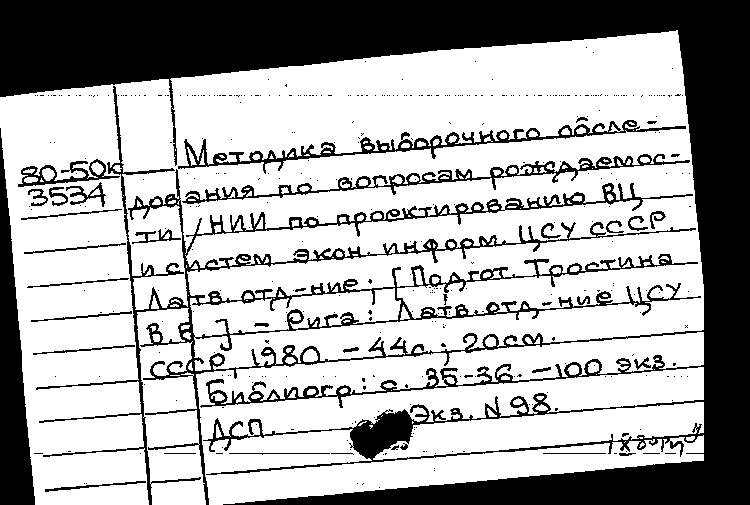 80-50к
3534
Методика выборочного обсле-
дования по вопросам рождаемос-
ти / НИИ по проектированию ВЦ
и систем экон. информ. ЦСУ СССР.
Латв. отд-ние; [Подгот. Тростина
В.В.]. - Рига: Латв. отд-ние ЦСУ
СССР, 1980. - 44с.; 20см.
Библиогр.: с. 35-36. - 100 экз.
ДСП. Экз. N 98.